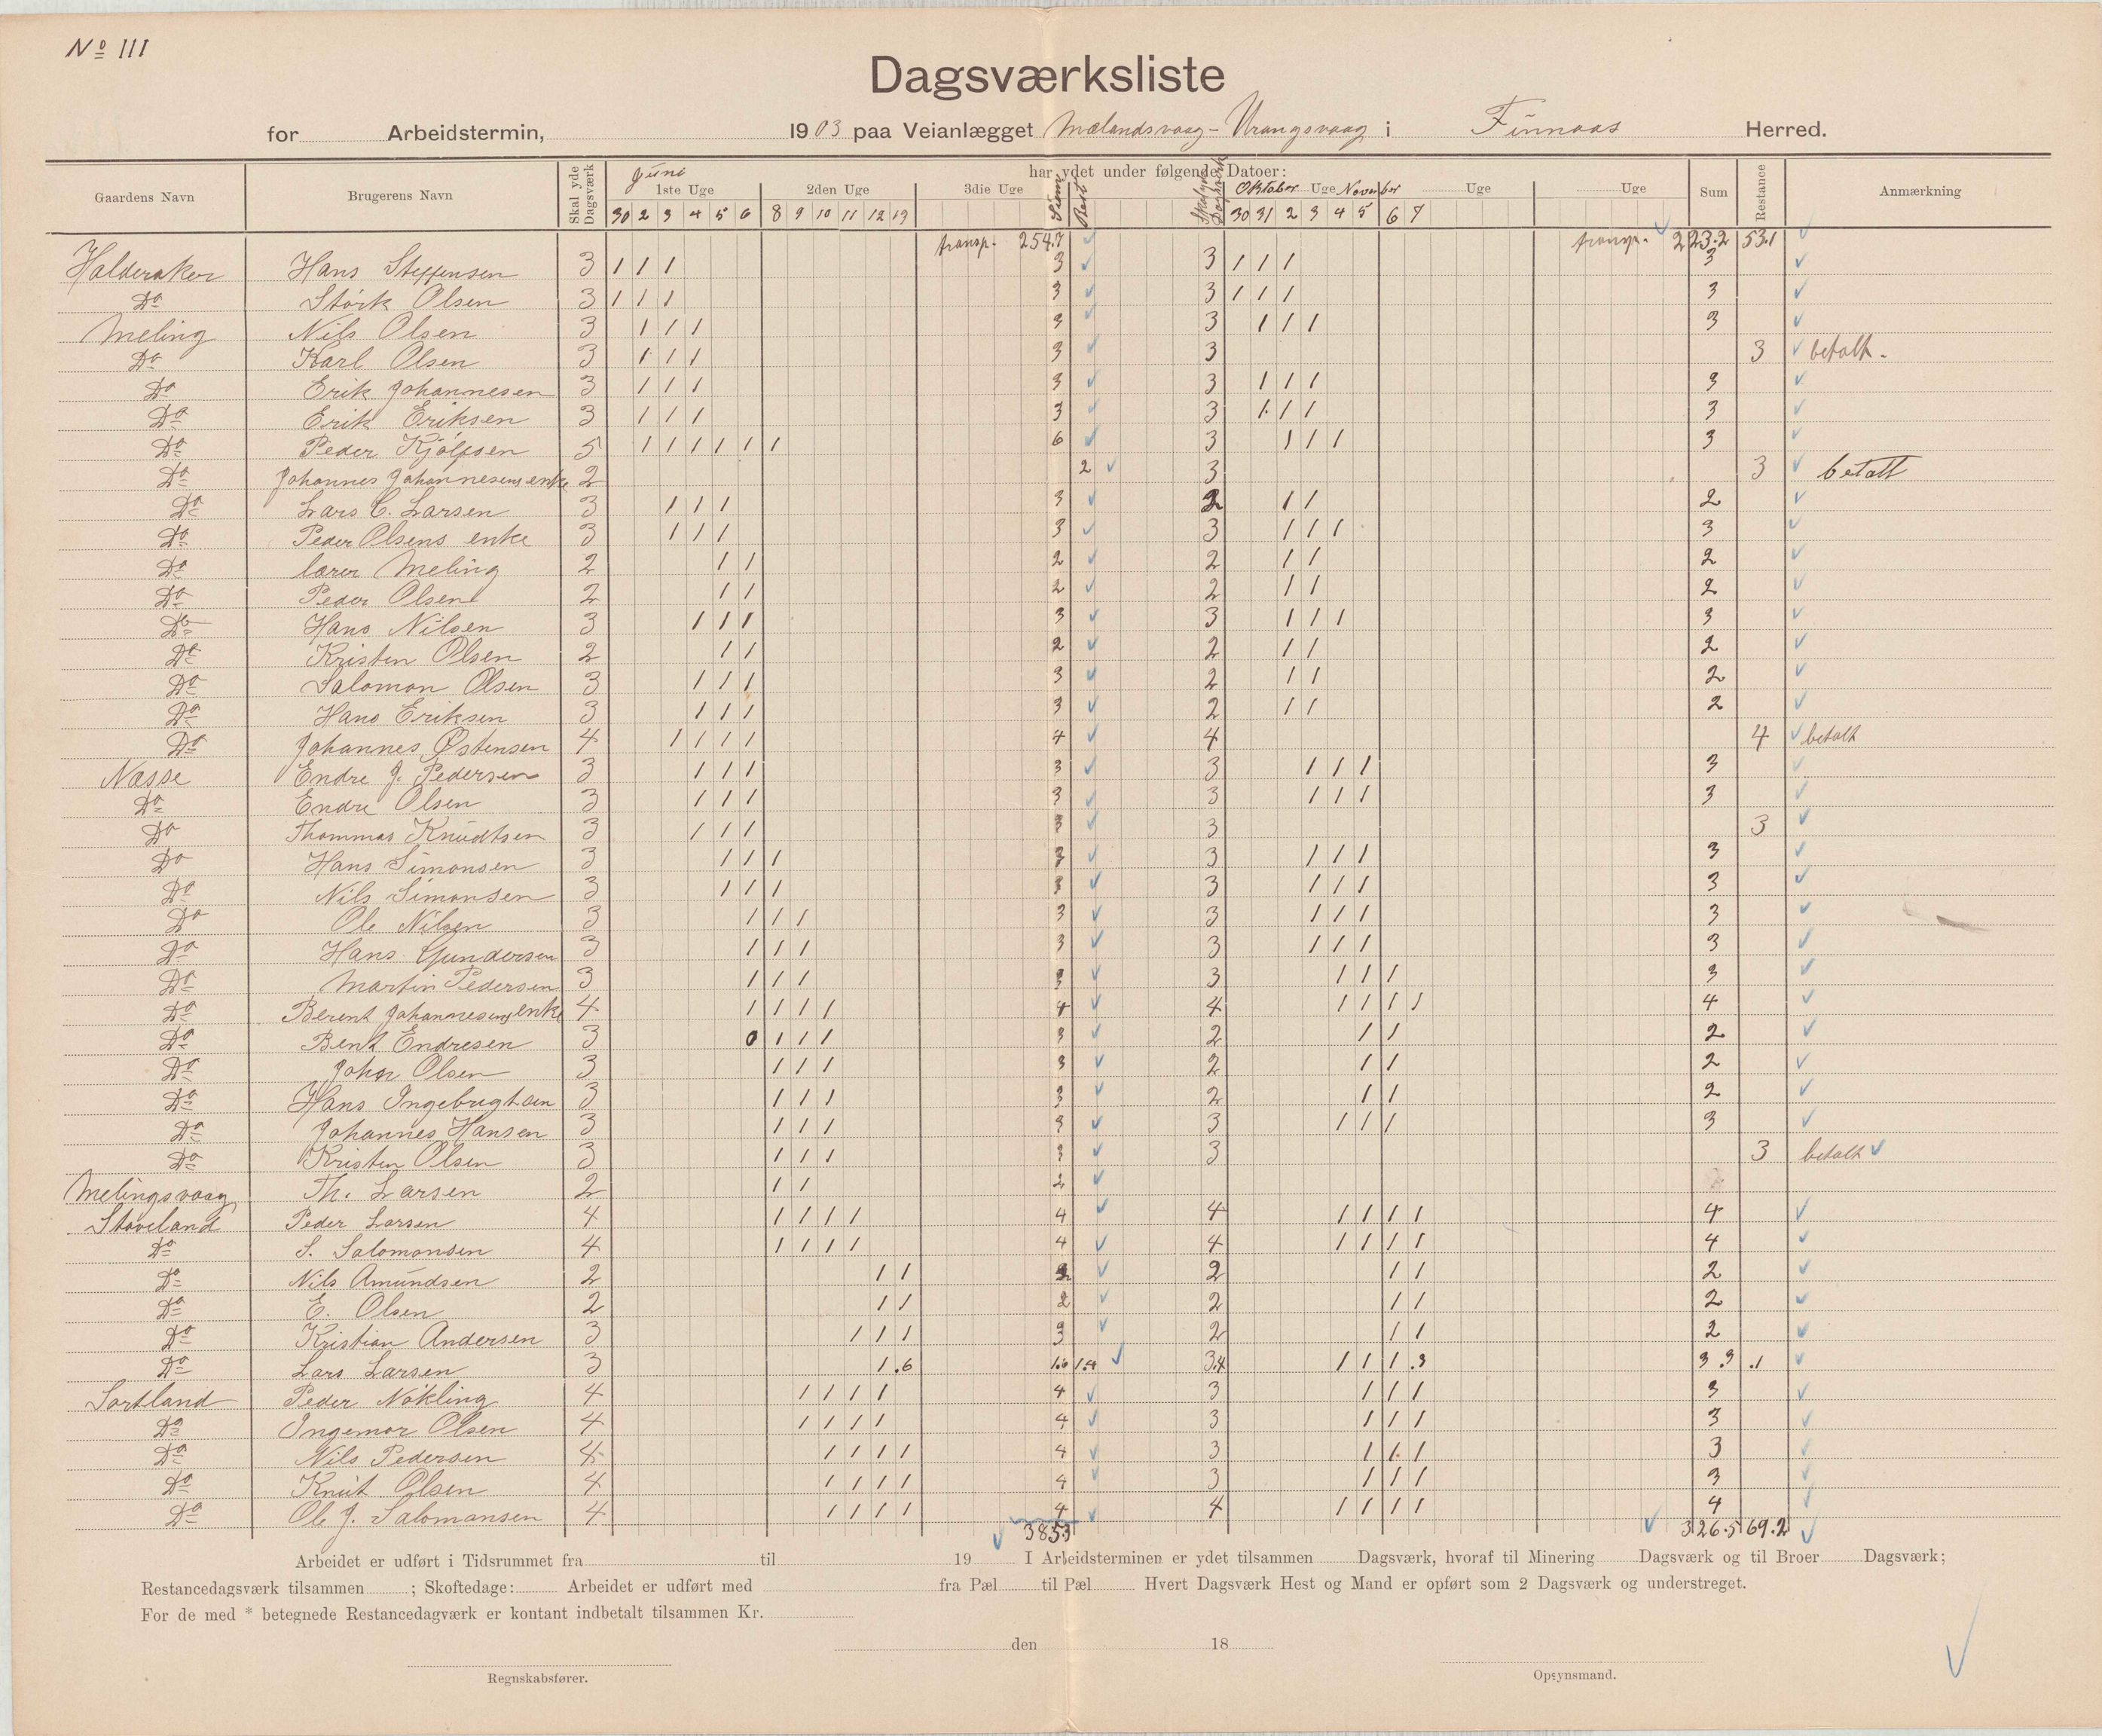 No III
Dagsværksliste
for Arbeidstermin, 1903 paa Veianlægget Mælandsvaag - Urangsvaag i Finnaas Herred.
Gaardens Navn Brugerens Navn Skal yde Dagsværk har ydet under følgende Datoer: Sum Restance Anmærkning
Juni 1ste Uge 2den Uge 3die Uge Sum Rest Skal yde Dagsværk Oktober Uge November Uge Uge
30 2 3 4 5 6 8 9 10 11 12 13 30 31 2 3 4 5 6 7
transp. 254.7 transp. 223.2 53.1
Halderaker Hans Steffensen 3 1 1 1 3 3 1 1 1 3
Do Störk Olsen 3 1 1 1 3 3 1 1 1 3
Meling Nils Olsen 3 1 1 1 3 3 1 1 1 3
Do Karl Olsen 3 1 1 1 3 3 3 betalt.
Do Erik Johannesen 3 1 1 1 3 3 1 1 1 3
Do Erik Eriksen 3 1 1 1 3 3 1 1 1 3
Do Peder Kjölfsen 5 1 1 1 1 1 1 6 3 1 1 1 3
Do Johannes Johannesens enke 2 2 3 3 betalt
Do Lars C. Larsen 3 1 1 1 3 2 1 1 2
Do Peder Olsens enke 3 1 1 1 3 3 1 1 1 3
Do lærer Meling 2 1 1 2 2 1 1 2
Do Peder Olsen 2 1 1 2 2 1 1 2
Do Hans Nilsen 3 1 1 1 3 3 1 1 1 3
Do Kristen Olsen 2 1 1 2 2 1 1 2
Do Salomon Olsen 3 1 1 1 3 2 1 1 2
Do Hans Eriksen 3 1 1 1 3 2 1 1 2
Do Johannes Östensen 4 1 1 1 1 4 4 4 betalt
Næsse Endre J. Pedersen 3 1 1 1 3 3 1 1 1 3
Do Endre Olsen 3 1 1 1 3 3 1 1 1 3
Do Thommas Knudtsen 3 1 1 1 3 3 3
Do Hans Simonsen 3 1 1 1 3 3 1 1 1 3
Do Nils Simonsen 3 1 1 1 3 3 1 1 1 3
Do Ole Nilsen 3 1 1 1 3 3 1 1 1 3
Do Hans Gundersen 3 1 1 1 3 3 1 1 1 3
Do Martin Pedersen 3 1 1 1 3 3 1 1 1 3
Do Berent Johannesens enke 4 1 1 1 1 4 4 1 1 1 1 4
Do Bent Endresen 3 0 1 1 1 3 2 1 1 2
Do John Olsen 3 1 1 1 3 2 1 1 2
Do Hans Ingebrigtsen 3 1 1 1 3 2 1 1 2
Do Johannes Hansen 3 1 1 1 3 3 1 1 1 3
Do Kristen Olsen 3 1 1 1 3 3 3 betalt
Melingsvaag Th. Larsen 2 1 1 2
Stoveland Peder Larsen 4 1 1 1 1 4 4 1 1 1 1 4
Do S. Salomonsen 4 1 1 1 1 4 4 1 1 1 1 4
Do Nils Amundsen 2 1 1 2 2 1 1 2
Do E. Olsen 2 1 1 2 2 1 1 2
Do Kristian Andersen 3 1 1 1 3 2 1 1 2
Do Lars Larsen 3 1 .6 1.6 1.4 3.4 1 1 1 .3 3.3 .1
Sortland Peder Nökling 4 1 1 1 1 4 3 1 1 1 3
Do Ingemor Olsen 4 1 1 1 1 4 3 1 1 1 3
Do Nils Pedersen 4 1 1 1 1 4 3 1 1 1 3
Do Knut Olsen 4 1 1 1 1 4 3 1 1 1 3
Do Ole J. Salomonsen 4 1 1 1 1 4 4 1 1 1 1 4
385.3 326.5 69.2
Arbeidet er udført i Tidsrummet fra til 19 I Arbeidsterminen er ydet tilsammen Dagsværk, hvoraf til Minering Dagsværk og til Broer Dagsværk;
Restancedagsværk tilsammen ; Skoftedage: Arbeidet er udført med fra Pæl til Pæl Hvert Dagsværk Hest og Mand er opført som 2 Dagsværk og understreget.
For de med * betegnede Restancedagværk er kontant indbetalt tilsammen Kr.
den 18
Regnskabsfører. Opsynsmand.